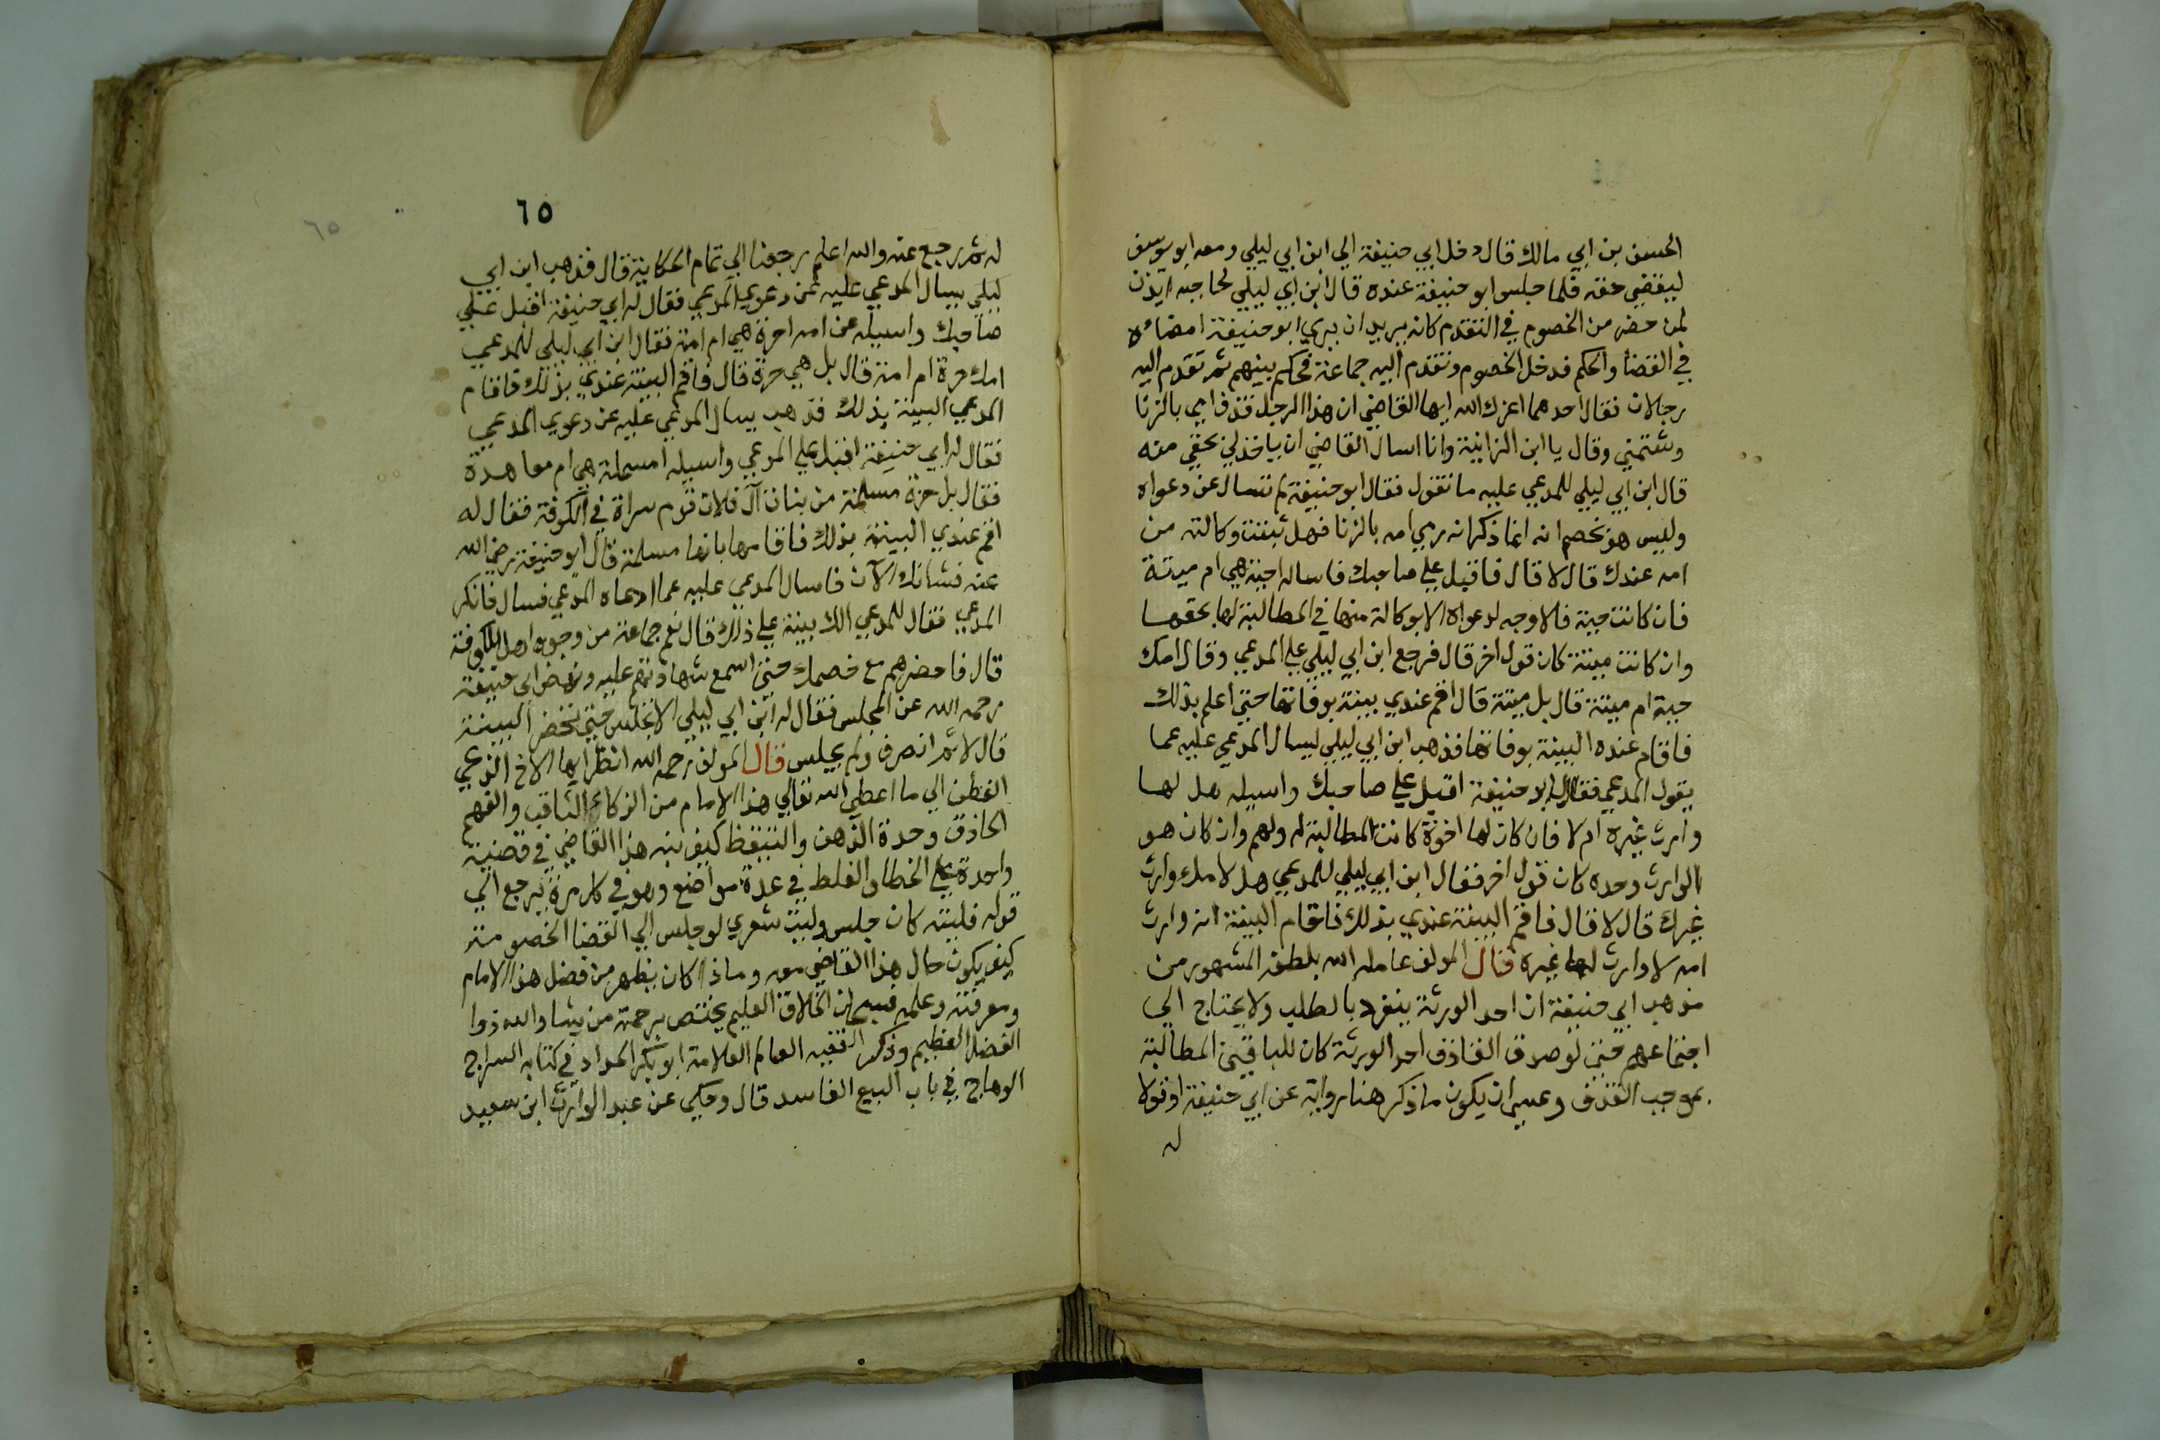 الحسن بن ابي مالك قال دخل ابي حنيفة الي ابن ابي ليلي ومعه ابو يوسف
ليقضي حقه فلما جلس ابو حنيفة عنده قال ابن ابي ليلي لحاجبه ايذن
لمن حضر من الخصوم في التقدم كانه يريد ان يري ابو حنيفة امضاه
في القضا والحكم فدخل الخصوم وتقدم اليه جماعة فحكم بينهم ثم تقدم اليه
رجلان فقال احدهما اعزك الله ايها القاضي ان هذا الرجل قذف امي بالزنا
وشتمني وقال يا ابن الزانية وانا اسال القاضي ان ياخذ لي بحقي منه
قال ابن ابي ليلي للمدعي عليه ما تقول فقال ابو حنيفة لم تسال عن دعواه
وليس هو بخصم انه انما ذكر انه رمي امه بالزنا فهل ثبتت وكالته من
امه عندك قال لا قال فاقبل علي صاحبك فاساله احية هي ام ميتة
فان كانت حية فلا وجه لدعواه الا بوكالة منها في المطالبة لها بحقها
وان كانت ميتة كان قول اخر قال فرجع ابن ابي ليلي علي المدعي وقال امك
حية ام ميتة قال بل ميتة قال اقم عندي بينة بوفاتها حتي اعلم بذلك
فاقام عنده البينة بوفاتها فذهب ابن ابي ليلي ليسال المدعي عليه عما
يقول المدعي فقال ابو حنيفة اقبل علي صاحبك واسيله هل لها
وارث غيره ام لا فان كان لها اخوة كانت المطالبة له ولهم وان كان هو
الوارث وحده كان قول اخر فقال ابن ابي ليلي للمدعي هل لامك وارث
غيرك قال لا قال فاقم البينة عندي بذلك فاقام البينة انه وارث
امه لا وارث لها غيره قال المولف عامله الله بلطفه المشهور من
مذهب ابي حنيفة ان احد الورثة ينفرد بالطلب ولا يحتاج الي
اجتماعهم حتي لو صدق القاذف احد الورثة كان للباقين المطالبة
بموجب القذف وعسي ان يكون ما ذكر هنا رواية عن ابي حنيفة او قولا
له
٦٥
له ثم رجع عنه والله اعلم رجعنا الي تمام الحكاية قال فذهب ابن ابي
ليلي يسال المدعي عليه عن دعوي المدعي فقال له ابي حنيفة اقبل علي
صاحبك واسيله عن امه احرة هي ام امة فقال ابن ابي ليلي للمدعي
امك حرة ام امة قال بل هي حرة قال فاقم البينة عندي بذلك فاقام
المدعي البينة بذلك فذهب يسال المدعي عليه عن دعوي المدعي
فقال له ابي حنيفة اقبل علي المدعي واسيله امسلمة هي ام معاهدة
فقال بل حرة مسلمة من بنات آل فلان قوم سراة في الكوفة فقال له
اقم عندي البينة بذلك فاقامها بانها مسلمة قال ابو حنيفة رضي الله
عنه فشانك الآن فاسال المدعي عليه عما ادعاه المدعي فسال فانكر
المدعي فقال للمدعي الك بينة علي ذلك قال نعم جماعة من وجوه اهل الكوفة
قال فاحضرهم مع خصمك حتي اسمع شهادتهم عليه ونهض ابي حنيفة
رحمه الله عن المجلس فقال له ابن ابي ليلي الا تجلس حتي تحضر البينة
قال لا ثم انصرف ولم يجلس قال المولف رحمه الله انظر ايها الاخ الذعي
الفطن الي ما اعطي الله تعالي هذا الامام من الذكاء الثاقب والفهم
الحاذق وحدة الذهن والتيقظ كيف نبه هذا القاضي في قضية
واحدة علي الخطا والغلط في عدة مواضع وهو في كل مرة يرجع الي
قوله فليته كان جلس وليت شعري لو جلس الي انقضا الخصومة
كيف يكون حال هذا القاضي معه وماذا كان يظهر من فضل هذا الامام
ومعرفته وعلمه فسبحان الخلاق العليم يختص برحمته من يشا والله ذوا
الفضل العظيم وذكر الفقيه العالم العلامة ابو بكر الحداد في كتابه السراج
الوهاج في باب البيع الفاسد قال وحكي عن عبد الوارث ابن سعيد